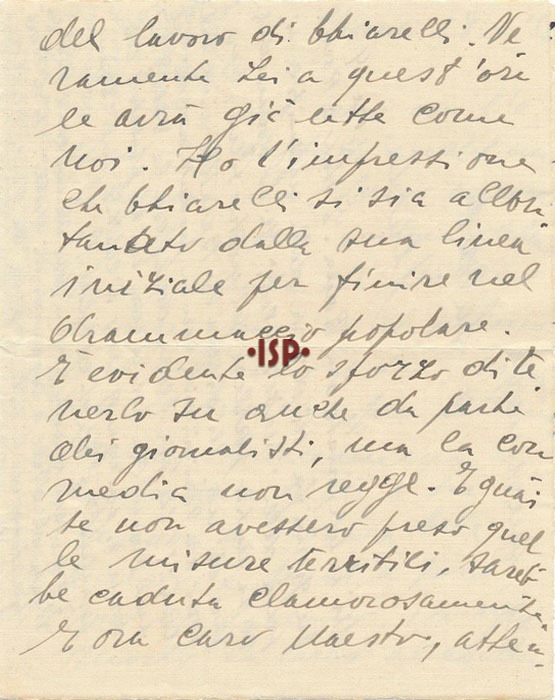 del lavoro di Chiarelli. Ve
ramente Lei a quest'ora
le avrà già lette come
noi. Ho l'impressione
che Chiarelli si sia allon
tanato dalla sua linea
iniziale per finire nel
drammaccio popolare.
•ISP•
È evidente lo sforzo di te
nerlo su anche da parte
dei giornalisti, ma la com
media non regge. E guai
se non avessero preso quel
le misure terribili, sareb
be caduta clamorosamente.
E ora caro Maestro, atten